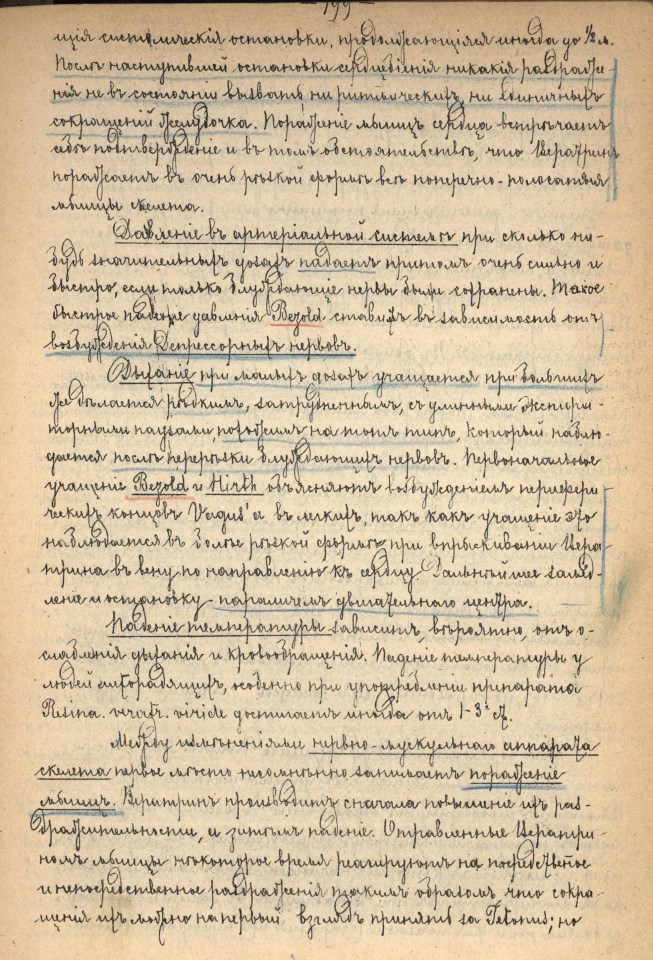 — 199 —
щія систолическія остановки, продолжающіяся иногда до 1/2 м.
Послѣ наступившей остановки сердцебіенія никакія раздраже-
нія не въ состояніи вызвать ни ритмическихъ, ни единичныхъ
сокращеній желудочка. Пораженіе мышцъ сердца встрѣчаетъ
себѣ подтвержденіе и въ томъ обстоятельствѣ, что Вератринъ
поражаетъ въ очень рѣзкой формѣ всѣ поперечно-полосатыя
мышцы скелета.
Давленіе въ артеріальной системѣ при сколько ни-
будь значительныхъ дозахъ падаетъ притомъ очень сильно и
быстро, если только блуждающіе нервы были сохранены. Такое
быстрое паденіе давленія Bezold ставитъ въ зависимость отъ
возбужденія Депрессорныхъ нервовъ.
Дыханіе при малыхъ дозахъ учащается при большихъ
же дѣлается рѣдкимъ, затрудненнымъ, съ длинными экспира-
торными паузами, походимъ на тотъ типъ, который наблю-
дается послѣ перерѣзки блуждающихъ нервовъ. Первоначальное
учащеніе Bezold и Hirth объясняютъ возбужденіемъ перифери-
ческихъ концовъ Vagus'a въ легкихъ, такъ какъ учащеніе это
наблюдается въ болѣе рѣзкой формѣ при впрыскиваніи Вера-
трина въ вену по направленію къ сердцу. Дальнѣйшее замед-
леніе и остановку - параличемъ двигательнаго центра.
Паденіе температуры зависитъ, вѣроятно, отъ о-
слабленія дыханія и кровообращенія. Паденіе температуры у
людей лихорадящихъ, особенно при употребленіи препарата
Resina. veratr. viride достигаетъ иногда отъ 1-3°
Между измѣненіями нервно-мускульнаго аппарата
скелета первое мѣсто несомнѣнно занимаетъ пораженіе
мышцъ. Вератринъ производитъ сначала повышеніе ихъ раз-
дражительности, а затѣмъ паденіе. Отравленные Вератри-
номъ мышцы нѣкоторое время реагируютъ на посредственное
и непосредственное раздраженія такимъ образомъ что сокра-
щенія ихъ можно на первый взглядъ принять за Tetanus; но